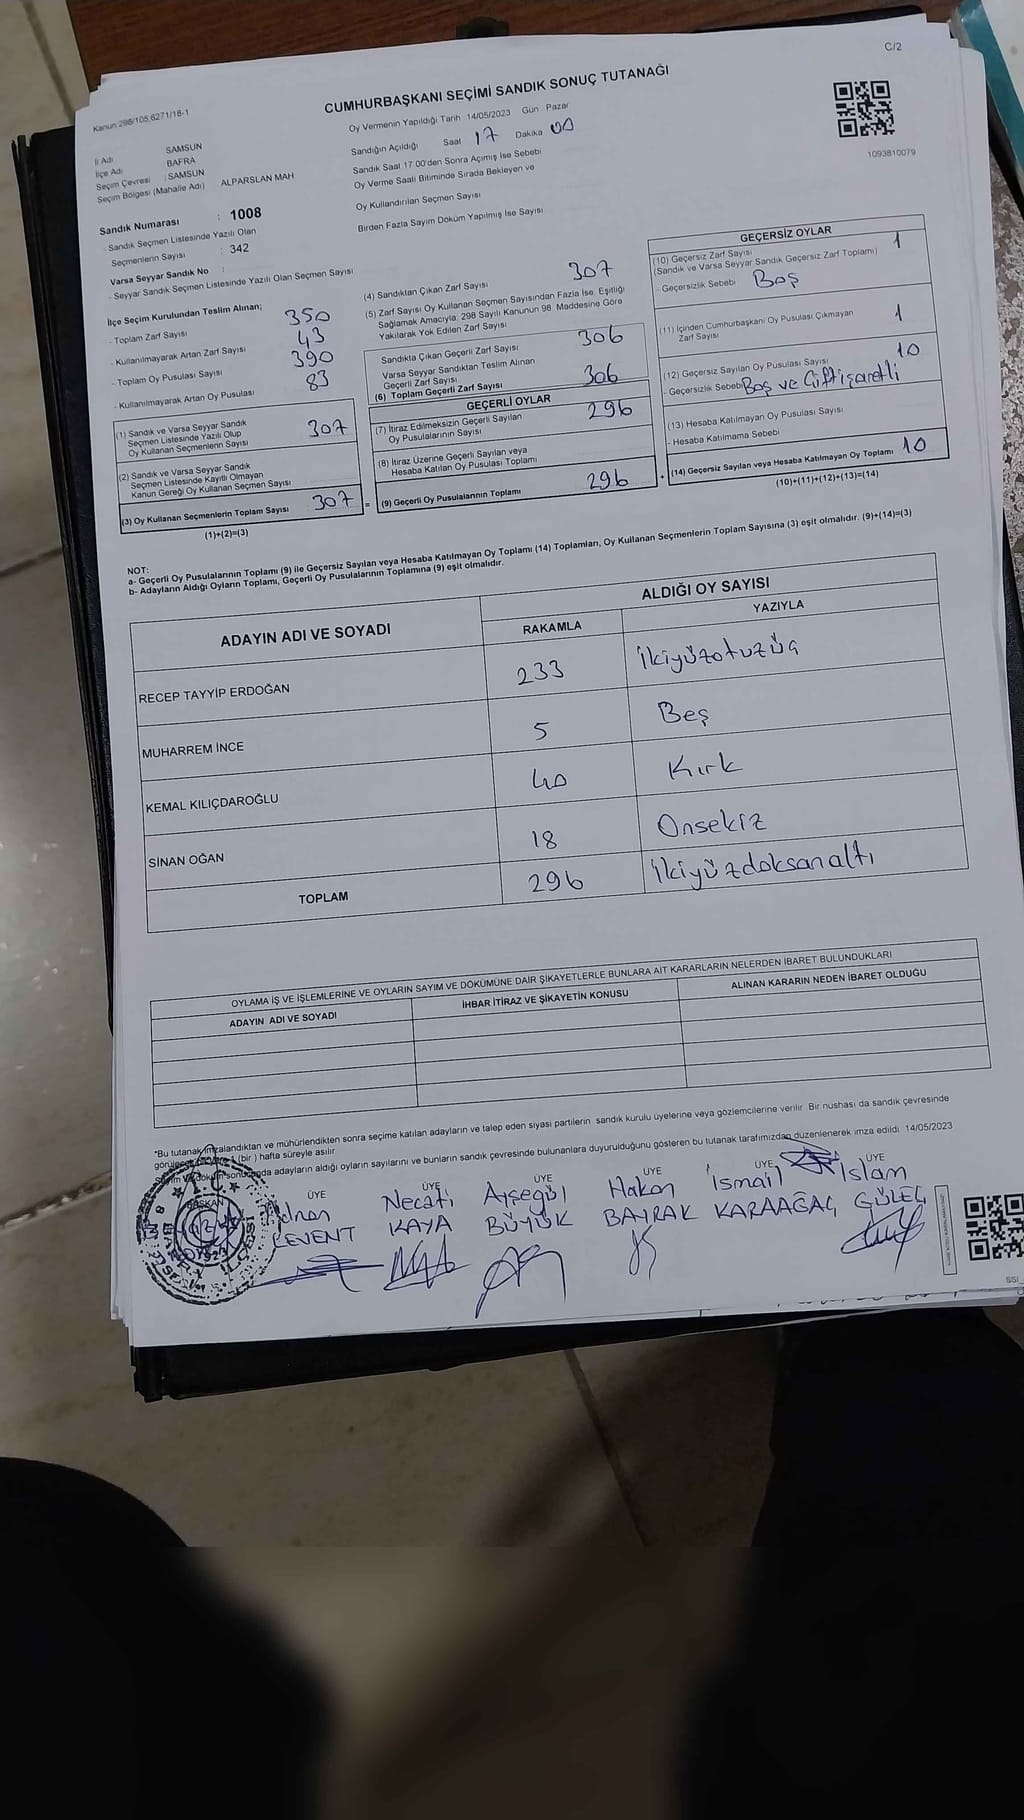 C/2
Kanun:298/105;6271/18-1
CUMHURBAŞKANI SEÇİMİ SANDIK SONUÇ TUTANAĞI
1093810079
İl Adı SAMSUN
İlçe Adı : BAFRA
Seçim Çevresi : SAMSUN
Seçim Bölgesi (Mahalle Adı) ALPARSLAN MAH
Sandık Numarası : 1008
- Sandık Seçmen Listesinde Yazılı Olan
Seçmenlerin Sayısı : 342
Varsa Seyyar Sandık No :
- Seyyar Sandık Seçmen Listesinde Yazılı Olan Seçmen Sayısı
Oy Vermenin Yapıldığı Tarih 14/05/2023 Gün Pazar
Sandığın Açıldığı Saat 17 Dakika 00
Sandık Saat 17:00'den Sonra Açımış İse Sebebi
Oy Verme Saati Bitiminde Sırada Bekleyen ve
Oy Kullandırılan Seçmen Sayısı
Birden Fazla Sayım Döküm Yapılmış İse Sayısı
İlçe Seçim Kurulundan Teslim Alınan;
- Toplam Zarf Sayısı 350
- Kullanılmayarak Artan Zarf Sayısı 43
- Toplam Oy Pusulası Sayısı 390
- Kullanılmayarak Artan Oy Pusulası 83
(1) Sandık ve Varsa Seyyar Sandık
Seçmen Listesinde Yazılı Olup
Oy Kullanan Seçmenlerin Sayısı 307
(2) Sandık ve Varsa Seyyar Sandık
Seçmen Listesinde Kayıtlı Olmayan
Kanun Gereği Oy Kullanan Seçmen Sayısı
(3) Oy Kullanan Seçmenlerin Toplam Sayısı 307 =
(1)+(2)=(3)
(4) Sandıktan Çıkan Zarf Sayısı 307
(5) Zarf Sayısı Oy Kullanan Seçmen Sayısından Fazla İse, Eşitliği
Sağlamak Amacıyla; 298 Sayılı Kanunun 98. Maddesine Göre
Yakılarak Yok Edilen Zarf Sayısı
Sandıkta Çıkan Geçerli Zarf Sayısı 306
Varsa Seyyar Sandıktan Teslim Alınan
Geçerli Zarf Sayısı
(6) Toplam Geçerli Zarf Sayısı 306
GEÇERLİ OYLAR
(7) İtiraz Edilmeksizin Geçerli Sayılan
Oy Pusulalarının Sayısı 296
(8) İtiraz Üzerine Geçerli Sayılan veya
Hesaba Katılan Oy Pusulası Toplamı
(9) Geçerli Oy Pusulalarının Toplamı 296 +
GEÇERSİZ OYLAR
(10) Geçersiz Zarf Sayısı 1
(Sandık ve Varsa Seyyar Sandık Geçersiz Zarf Toplamı)
- Geçersizlik Sebebi Boş
(11) İçinden Cumhurbaşkanı Oy Pusulası Çıkmayan
Zarf Sayısı 1
(12) Geçersiz Sayılan Oy Pusulası Sayısı 10
- Geçersizlik Sebebi Boş ve Çiftişaretli
(13) Hesaba Katılmayan Oy Pusulası Sayısı
- Hesaba Katılmama Sebebi
(14) Geçersiz Sayılan veya Hesaba Katılmayan Oy Toplamı 10
(10)+(11)+(12)+(13)=(14)
NOT:
a- Geçerli Oy Pusulalarının Toplamı (9) ile Geçersiz Sayılan veya Hesaba Katılmayan Oy Toplamı (14) Toplamları, Oy Kullanan Seçmenlerin Toplam Sayısına (3) eşit olmalıdır. (9)+(14)=(3)
b- Adayların Aldığı Oyların Toplamı, Geçerli Oy Pusulalarının Toplamına (9) eşit olmalıdır.
ADAYIN ADI VE SOYADI
ALDIĞI OY SAYISI
RAKAMLA YAZIYLA
RECEP TAYYİP ERDOĞAN 233 İkiyüzotuzüç
MUHARREM İNCE 5 Beş
KEMAL KILIÇDAROĞLU 40 Kırk
SİNAN OĞAN 18 Onsekiz
TOPLAM 296 İkiyüzdoksanaltı
OYLAMA İŞ VE İŞLEMLERİNE VE OYLARIN SAYIM VE DÖKÜMÜNE DAİR ŞİKAYETLERLE BUNLARA AİT KARARLARIN NELERDEN İBARET BULUNDUKLARI
ADAYIN ADI VE SOYADI İHBAR İTİRAZ VE ŞİKAYETİN KONUSU ALINAN KARARIN NEDEN İBARET OLDUĞU
*Bu tutanak imzalandıktan ve mühürlendikten sonra seçime katılan adayların ve talep eden siyasi partilerin sandık kurulu üyelerine veya gözlemcilerine verilir. Bir nushası da sandık çevresinde
(bir) hafta süreyle asılır
adayların aldığı oyların sayılarını ve bunların sandık çevresinde bulunanlara duyurulduğunu gösteren bu tutanak tarafımızdan düzenlenerek imza edildi. 14/05/2023
BAŞKAN ÜYE ÜYE ÜYE ÜYE ÜYE ÜYE
Adnan Necati Ayşegül Hakan İsmail İslam
LEVENT KAYA BÜYÜK BAYRAK KARAAĞAÇ GÜLEÇ
T.C.